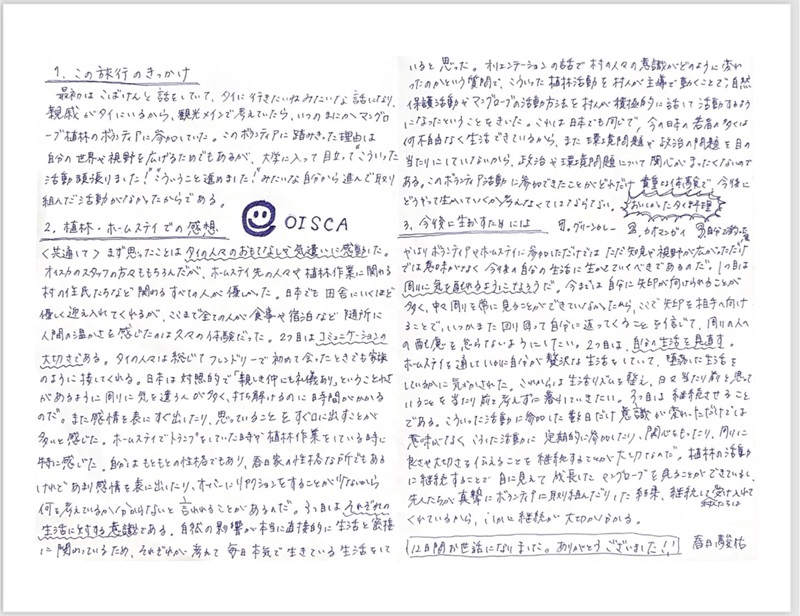 1. この旅行のきっかけ
最初はこばけんと話をしていて、タイに行きたいねみたいな話になり、
親戚がタイにいるから、観光メインで考えていたら、いつのまにかマングロ
ーブ植林のボランティアに参加していた。このボランティアに踏みきった理由は
自分の世界や視野を広げるためでもあるが、大学に入って目立って"こういった
活動頑張りました!""こういうこと進めました!"みたいな自分から進んで取り
組んだ活動がなかったからである。
2. 植林・ホームステイでの感想
OISCA
<共通して> まず思ったことはタイの人々のおもてなしや気遣いに感動した。
オイスカのスタッフの方々ももちろんだが、ホームステイ先の人々や植林作業に関わる
村の住民たちなど関わるすべての人が優しかった。日本でも田舎にいくほど
優しく迎え入れてくれるが、ここまで全ての人が食事や宿泊など随所に
人間の温かさを感じたのは久々の体験だった。2つ目はコミュニケーションの
大切さである。タイの人々は総じてフレンドリーで初めて会ったときでも家族
のように接してくれる。日本は対照的で「親しき仲にも礼儀あり」ということわざ
があるように周りに気を遣う人が多く、打ち解けるのに日時間がかかる
のだ。また感情を表にすぐ出したり、思っていることをすぐ口に出すことが
多いと感じた。ホームステイでトランプをしていた時や植林作業をしている時に
特に感じた。自分はもともとの性格でもあり、春日家の性格な所でもある
けれどあまり感情を表に出したり、オーバーにリアクションをすることが少ないから
何を考えているか分からないと言われることがあるのだ。3つ目はそれぞれの
生活に対する意識である。自然の影響が本当に直接的に生活と密接
に関わっているため、それぞれが考えて毎日本気で生きている生活をして
いると思った。オリエンテーションの話で村の人々の意識がどのように変わ
ったのかという質問で、こういった植林活動を村人が主導で動くことで、自然
保護活動やマングローブの活動方法を村人が積極的に話して活動するよう
になったということをきいた。これは日本でも同じで、今の日本の若者の多くは
何不自由なく生活できているから、また環境問題や政治の問題を目の
当たりにしていないから、政治や環境問題について関心がまったくないので
ある。このボランティア活動に参加できたことがどれだけ貴重な体験で、今後に
どうやって生かしていくか考えなくてはならない。
おいしかったタイ料理
3. 今後に生かすためには
グリーンカレー
カオマンガイ
やはりボランティアやホームステイに参加しただけではただ知見や視野が広がっただけ
では意味がなく今後の自分の生活に生かしていくべきであるのだ。1つ目は
周りに気を配れるようになろうだ。今までは自分に矢印が向けられることが
多く、中々周りを常に見ることができていなかったから、ここで矢印を相手へ向け
ることで、いつかまた回り回って自分に返ってくることを信じて、周りの人へ
の配慮を怠らないようにしたい。2つ目は、自分の生活を見直す。
ホームステイを通していかに自分が贅沢な生活をしていて、堕落した生活を
しているかに気づかされた。これからは生活リズムを整え、日々当たり前と思って
いることを当たり前と考えずに暮らしていきたい。3つ目は継続させること
である。こういった活動に参加した数日だけ意識が変わっただけでは
意味がなく、こういった活動に定期的に参加したり、関心をもったり、周りに
良さや大切さを伝えることを継続することが大切なのだ。植林の活動
に継続することで目に見えて成長したマングローブを見ることができているし、
先人たちが真摯にボランティアに取り組んだりした結果、継続して受け入れて
くれているから、いかに継続が大切か分かる。
12日間お世話になりました。ありがとうございました!!